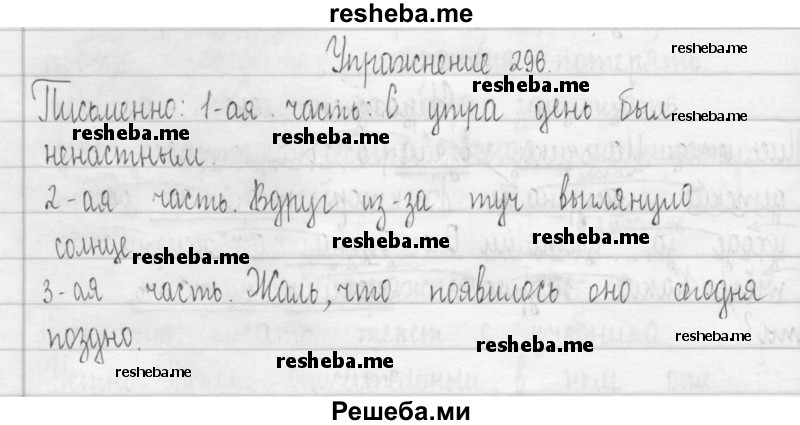 resheba.me
Упражнение 296. resheba.me
Письменно: 1-ая часть. С утра день был resheba.me
resheba.me resheba.me
ненастным.
2-ая часть. Вдруг из-за туч выглянуло
солнце resheba.me resheba.me resheba.me
3-ая часть. Жаль, что появилось оно сегодня
поздно. resheba.me resheba.me
resheba.me resheba.me
Решеба.ми